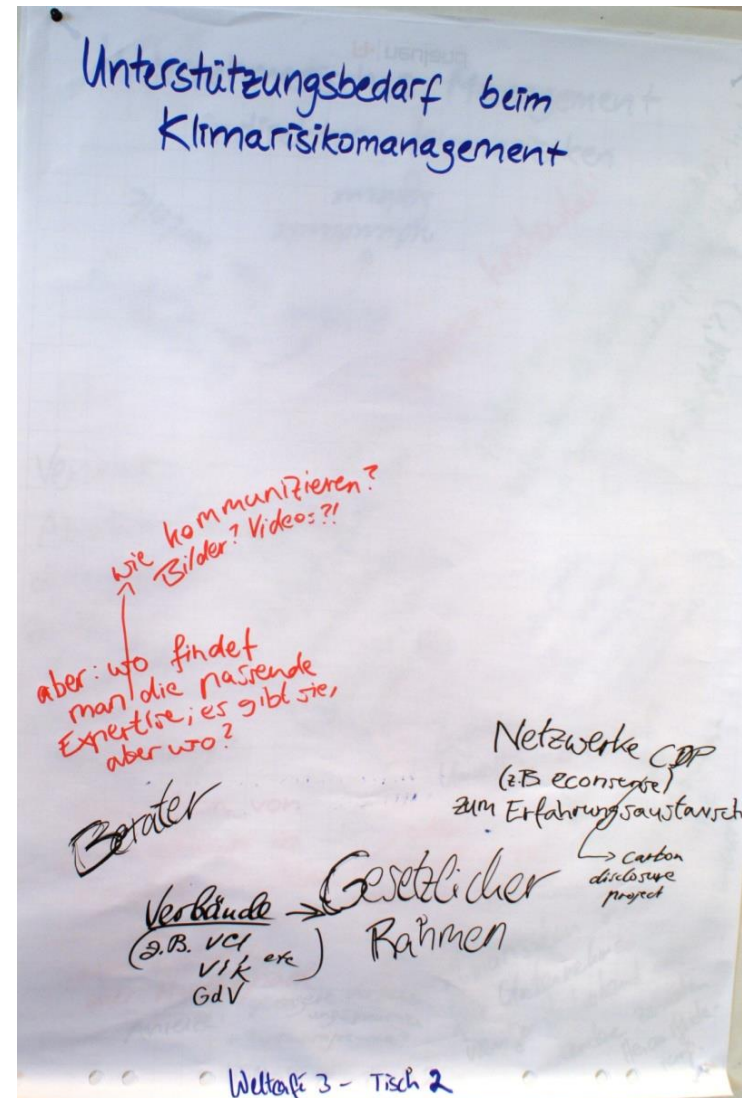 Unterstützungsbedarf beim
Klimarisikomanagement
wie kommunizieren?
Bilder? Videos?!
aber: wo findet
man die passende
Expertise; es gibt sie,
aber wo?
Berater
Netzwerke CDP
(z.B. econsense)
zum Erfahrungsaustausch
→ carbon
disclosure
project
Verbände →
(z.B. VCI
VIK etc)
GdV
Gesetzlicher
Rahmen
Weltcafé 3 - Tisch 2